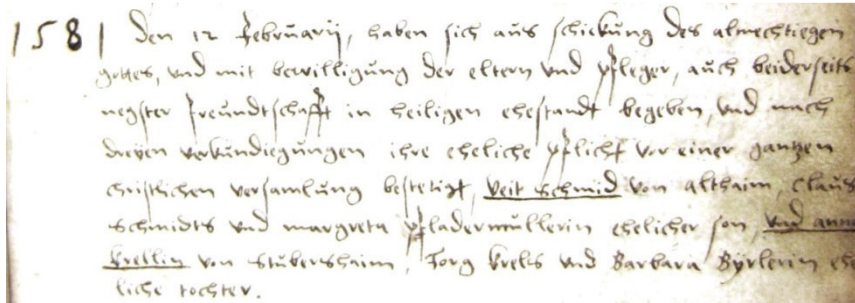 1581 Den 12 Februarij, haben sich aus schickung des almechtiegen
gottes, und mit bewilligung der eltern und pfleger, auch beiderseits
negster freundtschafft in heiligen ehestandt begeben, und nach
dreyen verkundiegungen ihre eheliche pflicht vor einer gantzen
christlichen versamlung bestetigt, Veit Schmid von althaim, Claus
Schmidts und margreta pfladermullerin ehelicher son, und anna
Krellin von Stubershaim, Jorg Krells und Barbara Byrlerin ehe
liche tochter.